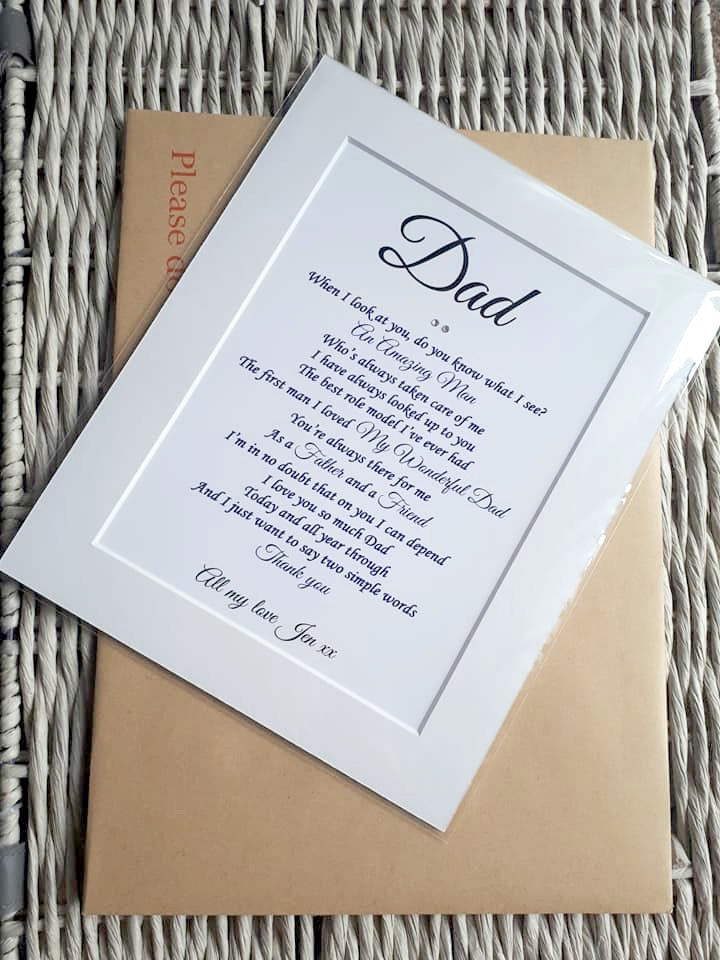 Please do
Dad
When I look at you, do you know what I see?
An Amazing Man
Who's always taken care of me
I have always looked up to you
The best role model I've ever had
The first man I loved My Wonderful Dad
You're always there for me
As a Father and a Friend
I'm in no doubt that on you I can depend
I love you so much Dad
Today and all year through
And I just want to say two simple words
Thank you
All my love Jen xx